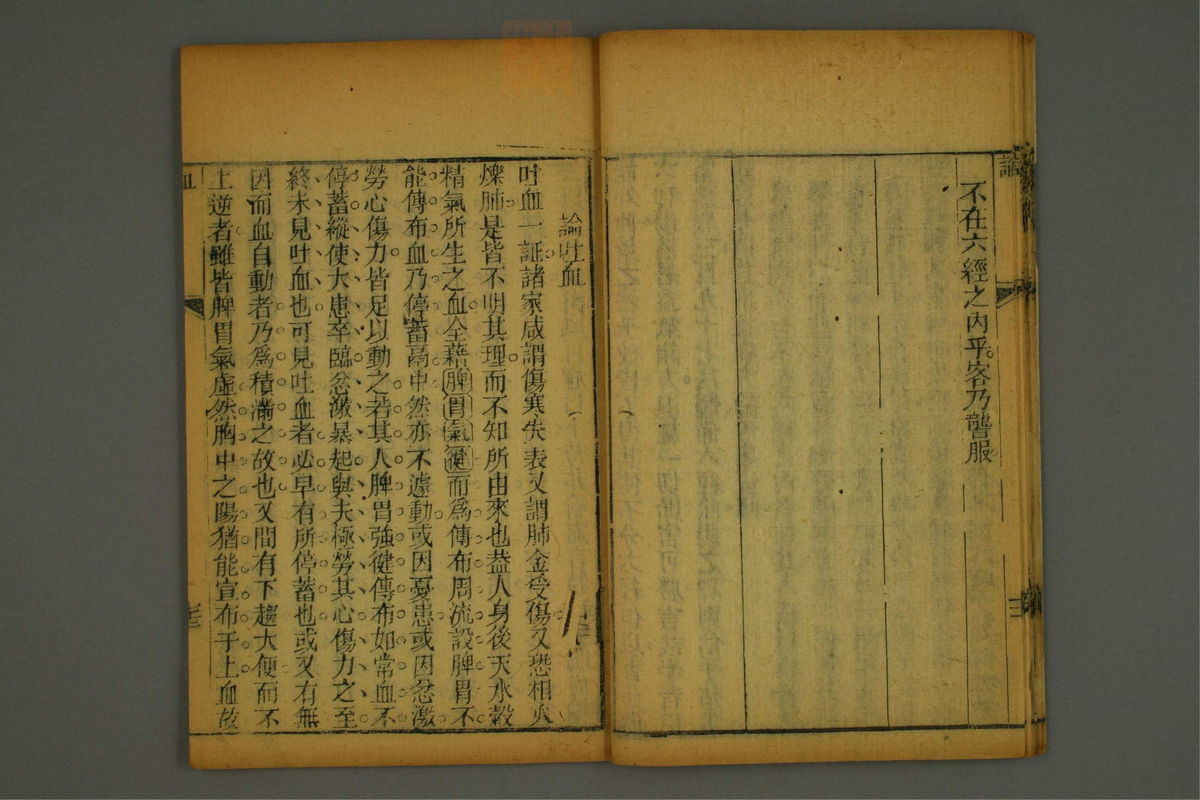 論
不在六經之內乎客乃讋服
三
論吐血
吐血一証諸家咸謂傷寒失表又謂肺金受傷又恐相火
爍肺是皆不明其理而不知所由來也葢人身後天水穀
精氣所生之血全藉脾胃氣健而爲傳布周流設脾胃不
能傳布血乃停蓄鬲中然亦不遽動或因憂患或因忿激
勞心傷力皆足以動之若其人脾胃強健傳布如常血不
停蓄縱使大患卒臨忿激暴起與夫極勞其心傷力之至
終未見吐血也可見吐血者必早有所停蓄也或又有無
因而血自動者乃爲積滿之故也又間有下趨大便而不
上逆者雖皆脾胃氣虛然胸中之陽猶能宣布于上血故
血
三